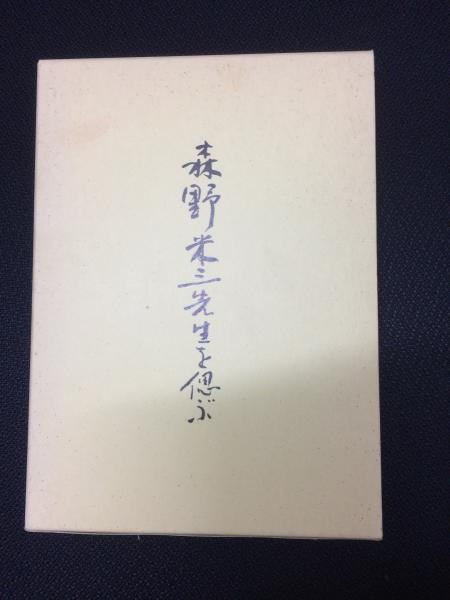 森野米三先生を偲ぶ